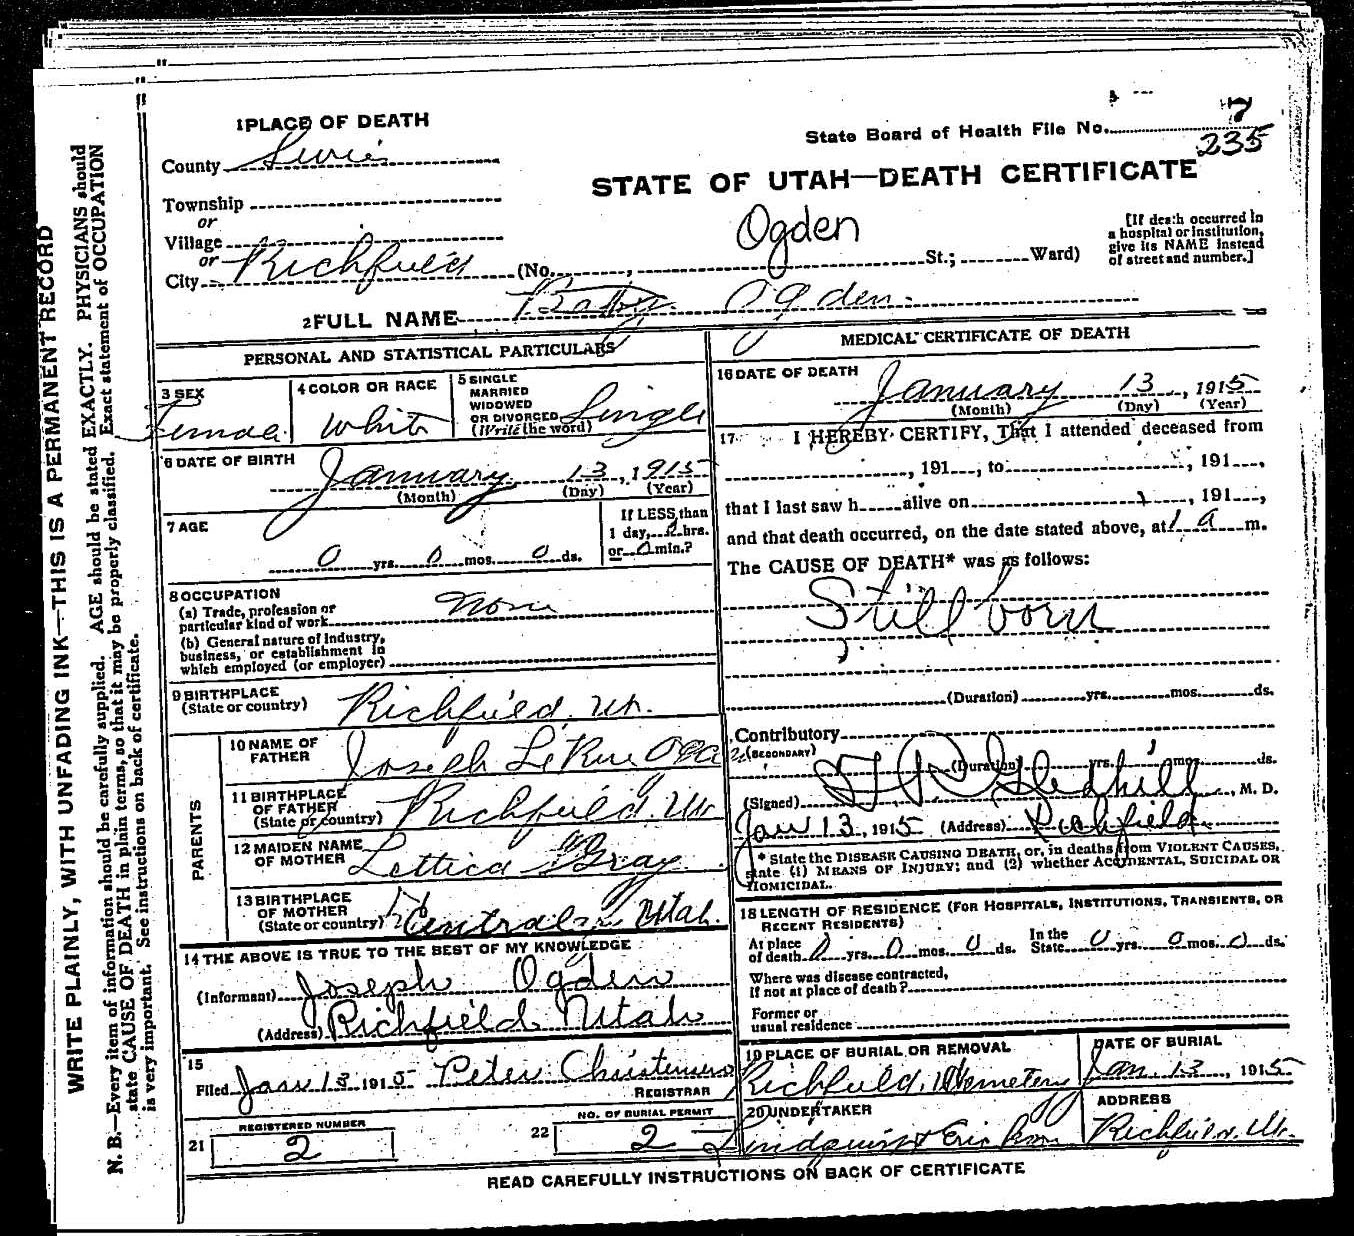 WRITE PLAINLY, WITH UNFADING INK—THIS IS A PERMANENT RECORD
N. B.—Every item of information should be carefully supplied. AGE should be stated EXACTLY. PHYSICIANS should
state CAUSE OF DEATH in plain terms, so that it may be properly classified. Exact statement of OCCUPATION
is very important. See instructions on back of certificate.
1 PLACE OF DEATH
State Board of Health File No. 7
235
County Sevier
STATE OF UTAH—DEATH CERTIFICATE
Township
or
Village
or
City Richfield (No. , Ogden St.; Ward)
[If death occurred in
a hospital or institution,
give its NAME instead
of street and number.]
2 FULL NAME Baby Ogden
PERSONAL AND STATISTICAL PARTICULARS
3 SEX
Female
4 COLOR OR RACE
White
5 SINGLE
MARRIED
WIDOWED
OR DIVORCED
(Write the word) Single
6 DATE OF BIRTH
January 13, 1915
(Month) (Day) (Year)
7 AGE
0 yrs. 0 mos. 0 ds.
If LESS than
1 day, 0 hrs.
or 0 min.?
8 OCCUPATION
(a) Trade, profession or
particular kind of work None
(b) General nature of Industry,
business, or establishment in
which employed (or employer)
9 BIRTHPLACE
(State or country) Richfield, Ut.
PARENTS
10 NAME OF
FATHER Joseph LeRue Ogden
11 BIRTHPLACE
OF FATHER
(State or country) Richfield, Ut
12 MAIDEN NAME
OF MOTHER Lettica Gray
13 BIRTHPLACE
OF MOTHER
(State or country) Central Utah.
14 THE ABOVE IS TRUE TO THE BEST OF MY KNOWLEDGE
(Informant) Joseph Ogden
(Address) Richfield Utah
15
Filed Jan 13 1915 Peter Christensen
REGISTRAR
21 REGISTERED NUMBER
2
22 NO. OF BURIAL PERMIT
2
MEDICAL CERTIFICATE OF DEATH
16 DATE OF DEATH
January 13, 1915
(Month) (Day) (Year)
17 I HEREBY CERTIFY, That I attended deceased from
, 191 , to , 191 ,
that I last saw h alive on , 191 ,
and that death occurred, on the date stated above, at 1 a m.
The CAUSE OF DEATH* was as follows:
Stillborn
(Duration) yrs. mos. ds.
Contributory
(SECONDARY)
(Duration) yrs. mos. ds.
(Signed) Gledhill, M. D.
Jan 13, 1915 (Address) Richfield
* State the DISEASE CAUSING DEATH, or, in deaths from VIOLENT CAUSES,
state (1) MEANS OF INJURY; and (2) whether ACCIDENTAL, SUICIDAL OR
HOMICIDAL.
18 LENGTH OF RESIDENCE (FOR HOSPITALS, INSTITUTIONS, TRANSIENTS, OR
RECENT RESIDENTS)
At place
of death 0 yrs. 0 mos. 0 ds. In the
State 0 yrs. 0 mos. 0 ds.
Where was disease contracted,
if not at place of death?
Former or
usual residence
19 PLACE OF BURIAL OR REMOVAL
Richfield, Cemetery
DATE OF BURIAL
Jan. 13, 1915
20 UNDERTAKER
Lindquist & Erickson
ADDRESS
Richfield. Ut.
READ CAREFULLY INSTRUCTIONS ON BACK OF CERTIFICATE